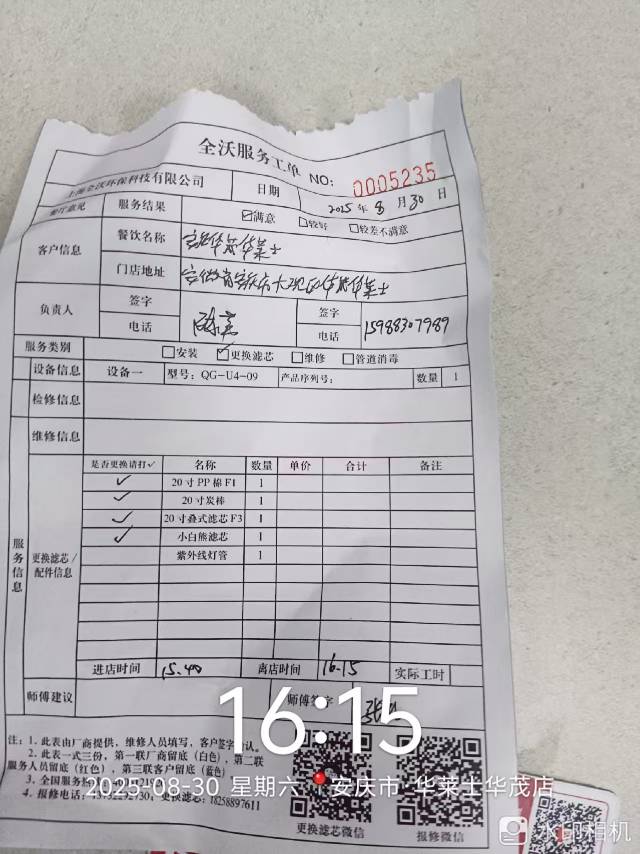 全沃服务工单 NO: 0005235
上海全沃环保科技有限公司 日期 2025年8月30日
餐厅意见 服务结果 ☑满意 □较好 □较差不满意
客户信息 餐饮名称 安庆华茂华莱士
门店地址 安徽省安庆市大观区华茂华莱士
负责人 签字 签字
电话 电话 15988307989
服务类别 □安装 ☑更换滤芯 □维修 □管道消毒
设备信息 设备一 型号: QG-U4-09 产品序列号: 数量 1
检修信息
维修信息
服务信息 更换滤芯/配件信息
是否更换请打✓ 名称 数量 单价 合计 备注
✓ 20寸PP棉F1 1
✓ 20寸炭棒 1
✓ 20寸叠式滤芯F3 1
✓ 小白熊滤芯 1
紫外线灯管 1
进店时间 15.40 离店时间 16.15 实际工时
师傅建议 师傅签字
16:15
注: 1. 此表由厂商提供, 维修人员填写, 客户签字确认。
2. 此表一式三份, 第一联厂商留底(白色), 第二联
服务人员留底(红色), 第三联客户留底(蓝色)
3. 全国服务
2025-08-30 星期六 安庆市·华莱士华茂店
4. 报修电话: 更换滤芯: 18258897611
更换滤芯微信 报修微信
水印相机